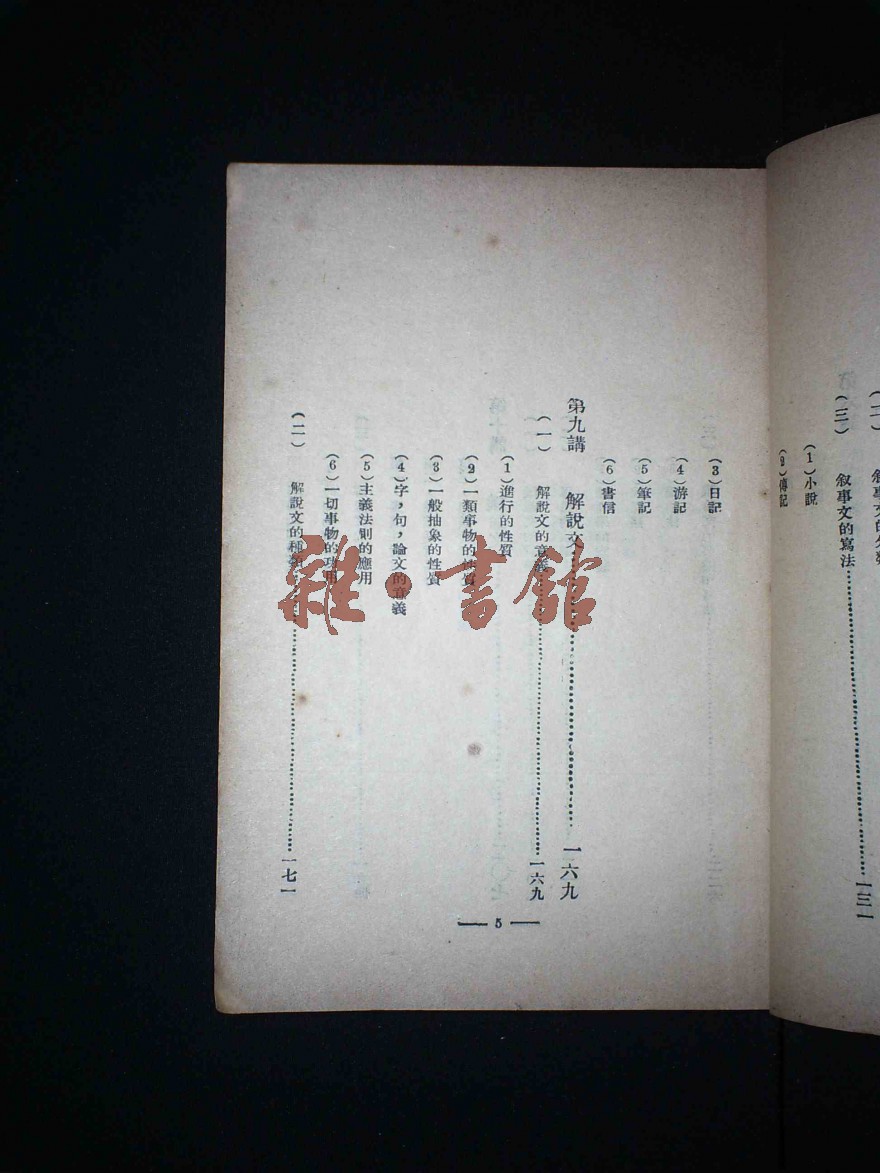 (三) 敘事文的寫法……一三一
(1)小說
(2)傳記
(3)日記
(4)游記
(5)筆記
(6)書信
第九講 解說文……一六九
(一) 解說文的意義……一六九
(1)進行的性質
(2)一類事物的性質
(3)一般抽象的性質
(4)字，句，論文的意義
(5)主義法則的應用
(6)一切事物的功用
(二) 解說文的種類……一七一
— 5 —
雜·書館